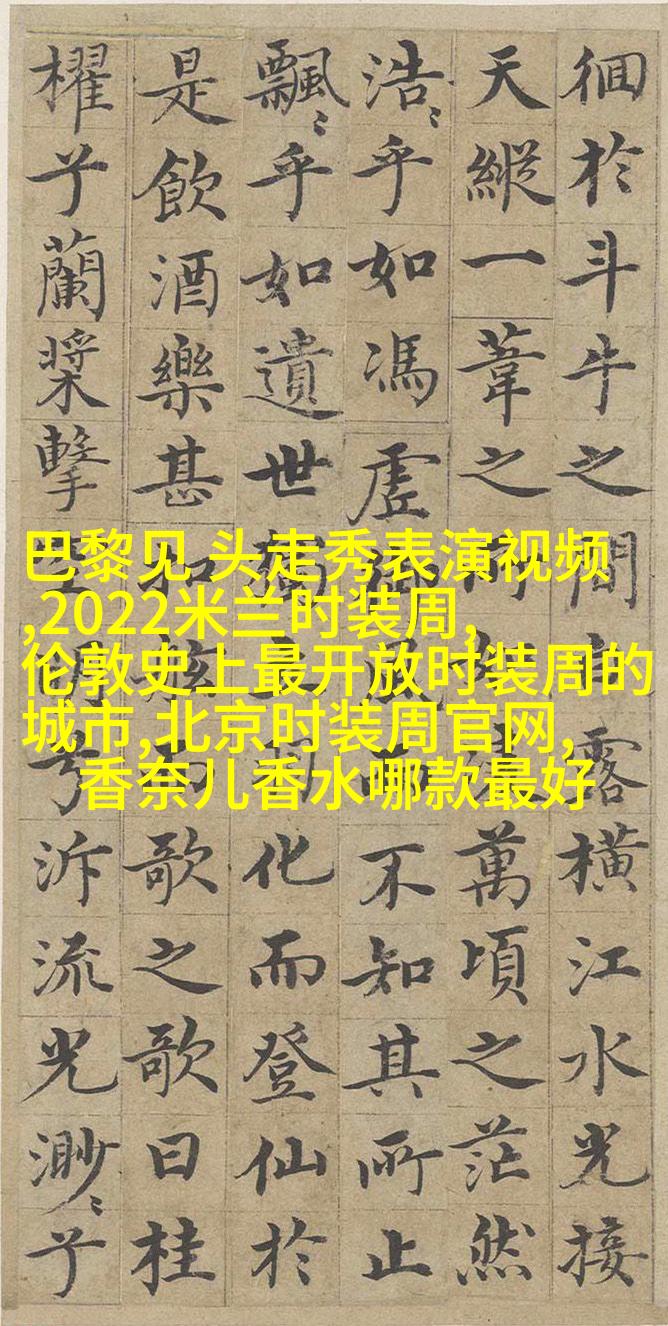 徊於斗牛之間露橫江水光接
天縱一葦之萬頃之茫然
浩〻乎如馮虛不知其所止
飄〻乎如遺世化而登仙於
是飲酒樂甚歌之歌曰桂
櫂兮蘭槳擊兮泝流光渺〻兮
巴黎见 头走秀表演视频
,2022米兰时装周,
伦敦史上最开放时装周的
城市,北京时装周官网,
香奈儿香水哪款最好